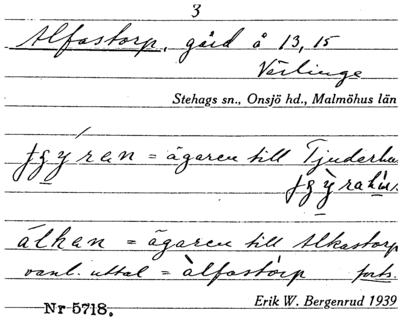 3
Alfastorp, gård å 13, 15
Värlinge
Stehags sn., Onsjö hd., Malmöhus län
ʃgýran = ägaren till Tjuderhu
ʃgỳrahús.
álhan = ägaren till Alkastorp
vanl. uttal = àlfastòrp forts.
Nr 5718.
Erik W. Bergenrud 1939